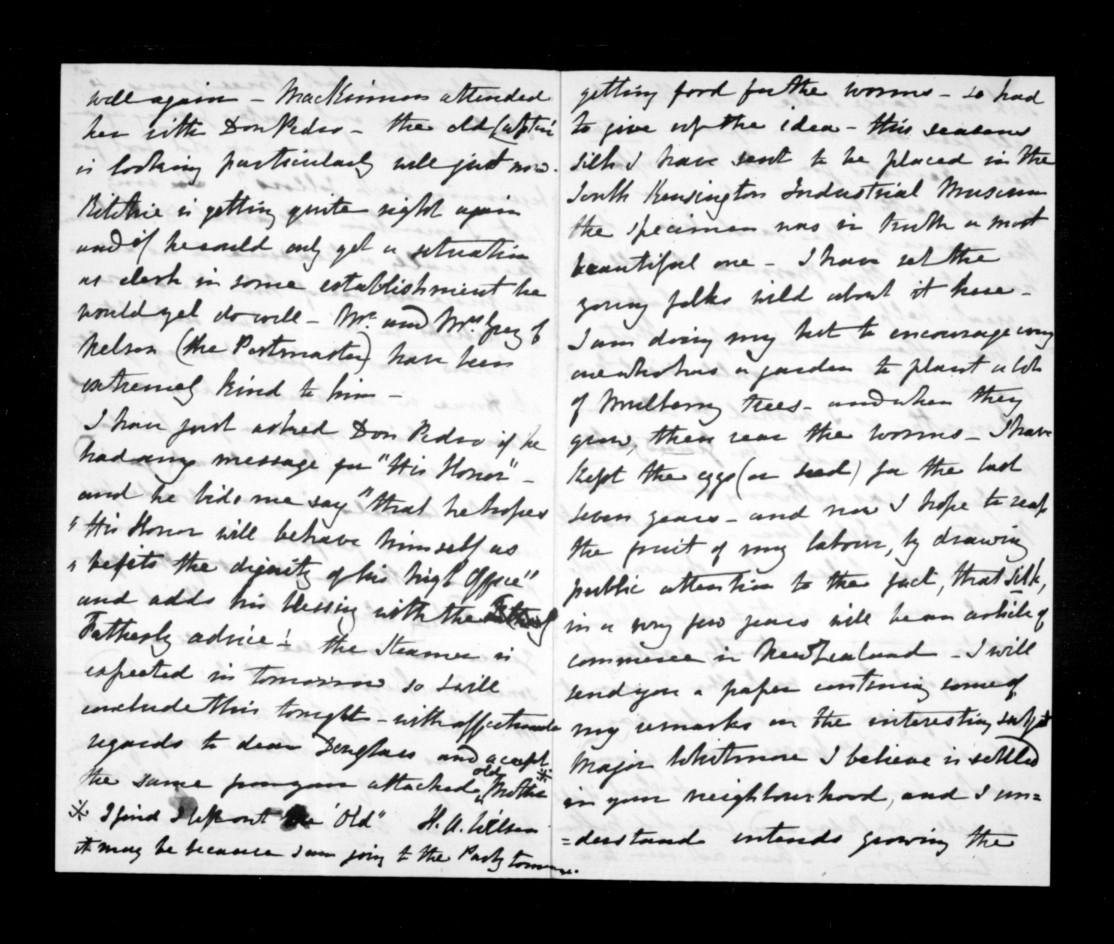 well again – MacKinnon attended
her with Don Pedro – the old Captain
is looking particularly well just now.
Ritchie is getting quite right again
and if he could only get a situation
as clerk in some establishment he
would yet do well – Mr. and Mrs Gray of
Nelson (the Postmaster) have been
extremely kind to him –
I have just asked Don Pedro if he
had any message for "His Honor" –
and he bids me say "that he hopes
" His Honor will behave himself as
" befits the dignity of his high Office"
and adds his blessing with the
Fatherly advice! the Steamer is
expected in tomorrow so I will
conclude this tonight – with affectionate
regards to dear Douglas and accept
the same from your attached old Mother *
* I find I left out the 'Old" H. A. Wilson
it may be because I am going to the Party tomorrow.
getting food for the worms – so had
to give up the idea – this seasons
silk I have sent to be placed in the
South Kensington Industrial Museum
the specimen was in truth a most
beautiful one – I have set the
young folks wild about it here –
I am doing my best to encourage every
one who has a garden to plant a lot
of Mulberry trees – and when they
grow, then rear the worms – I have
kept the eggs (or seed) for the last
seven years – and now I hope to reap
the fruit of my labour, by drawing
public attention to the fact, that silk,
in a very few years will be an article of
commerce in New Zealand – I will
send you a paper containing some of
my remarks on the interesting subject
Major Whitmore I believe is settled
in your neighbourhood, and I un=
=derstand intends growing the